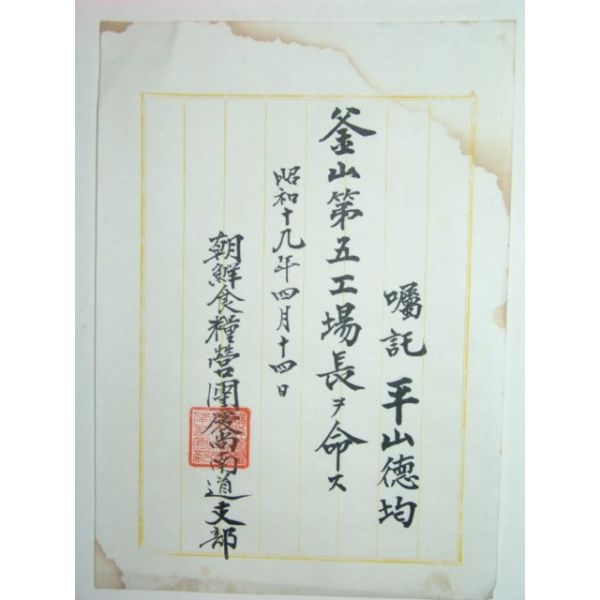 囑託 平山徳均
釜山第五工場長ヲ命ス
昭和十九年四月十四日
朝鮮食糧營團慶尚南道支部